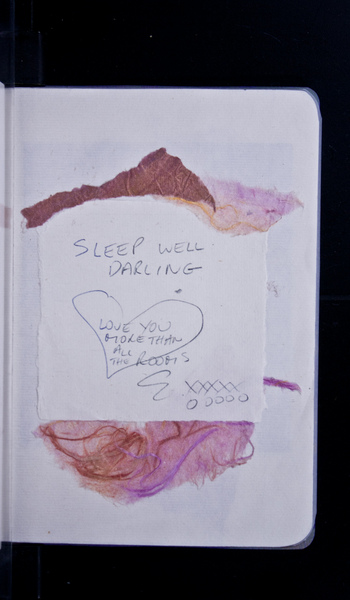 SLEEP WELL
DARLING
LOVE YOU
MORE THAN
ALL
THE ROOMS
XXXXX
OOOOO